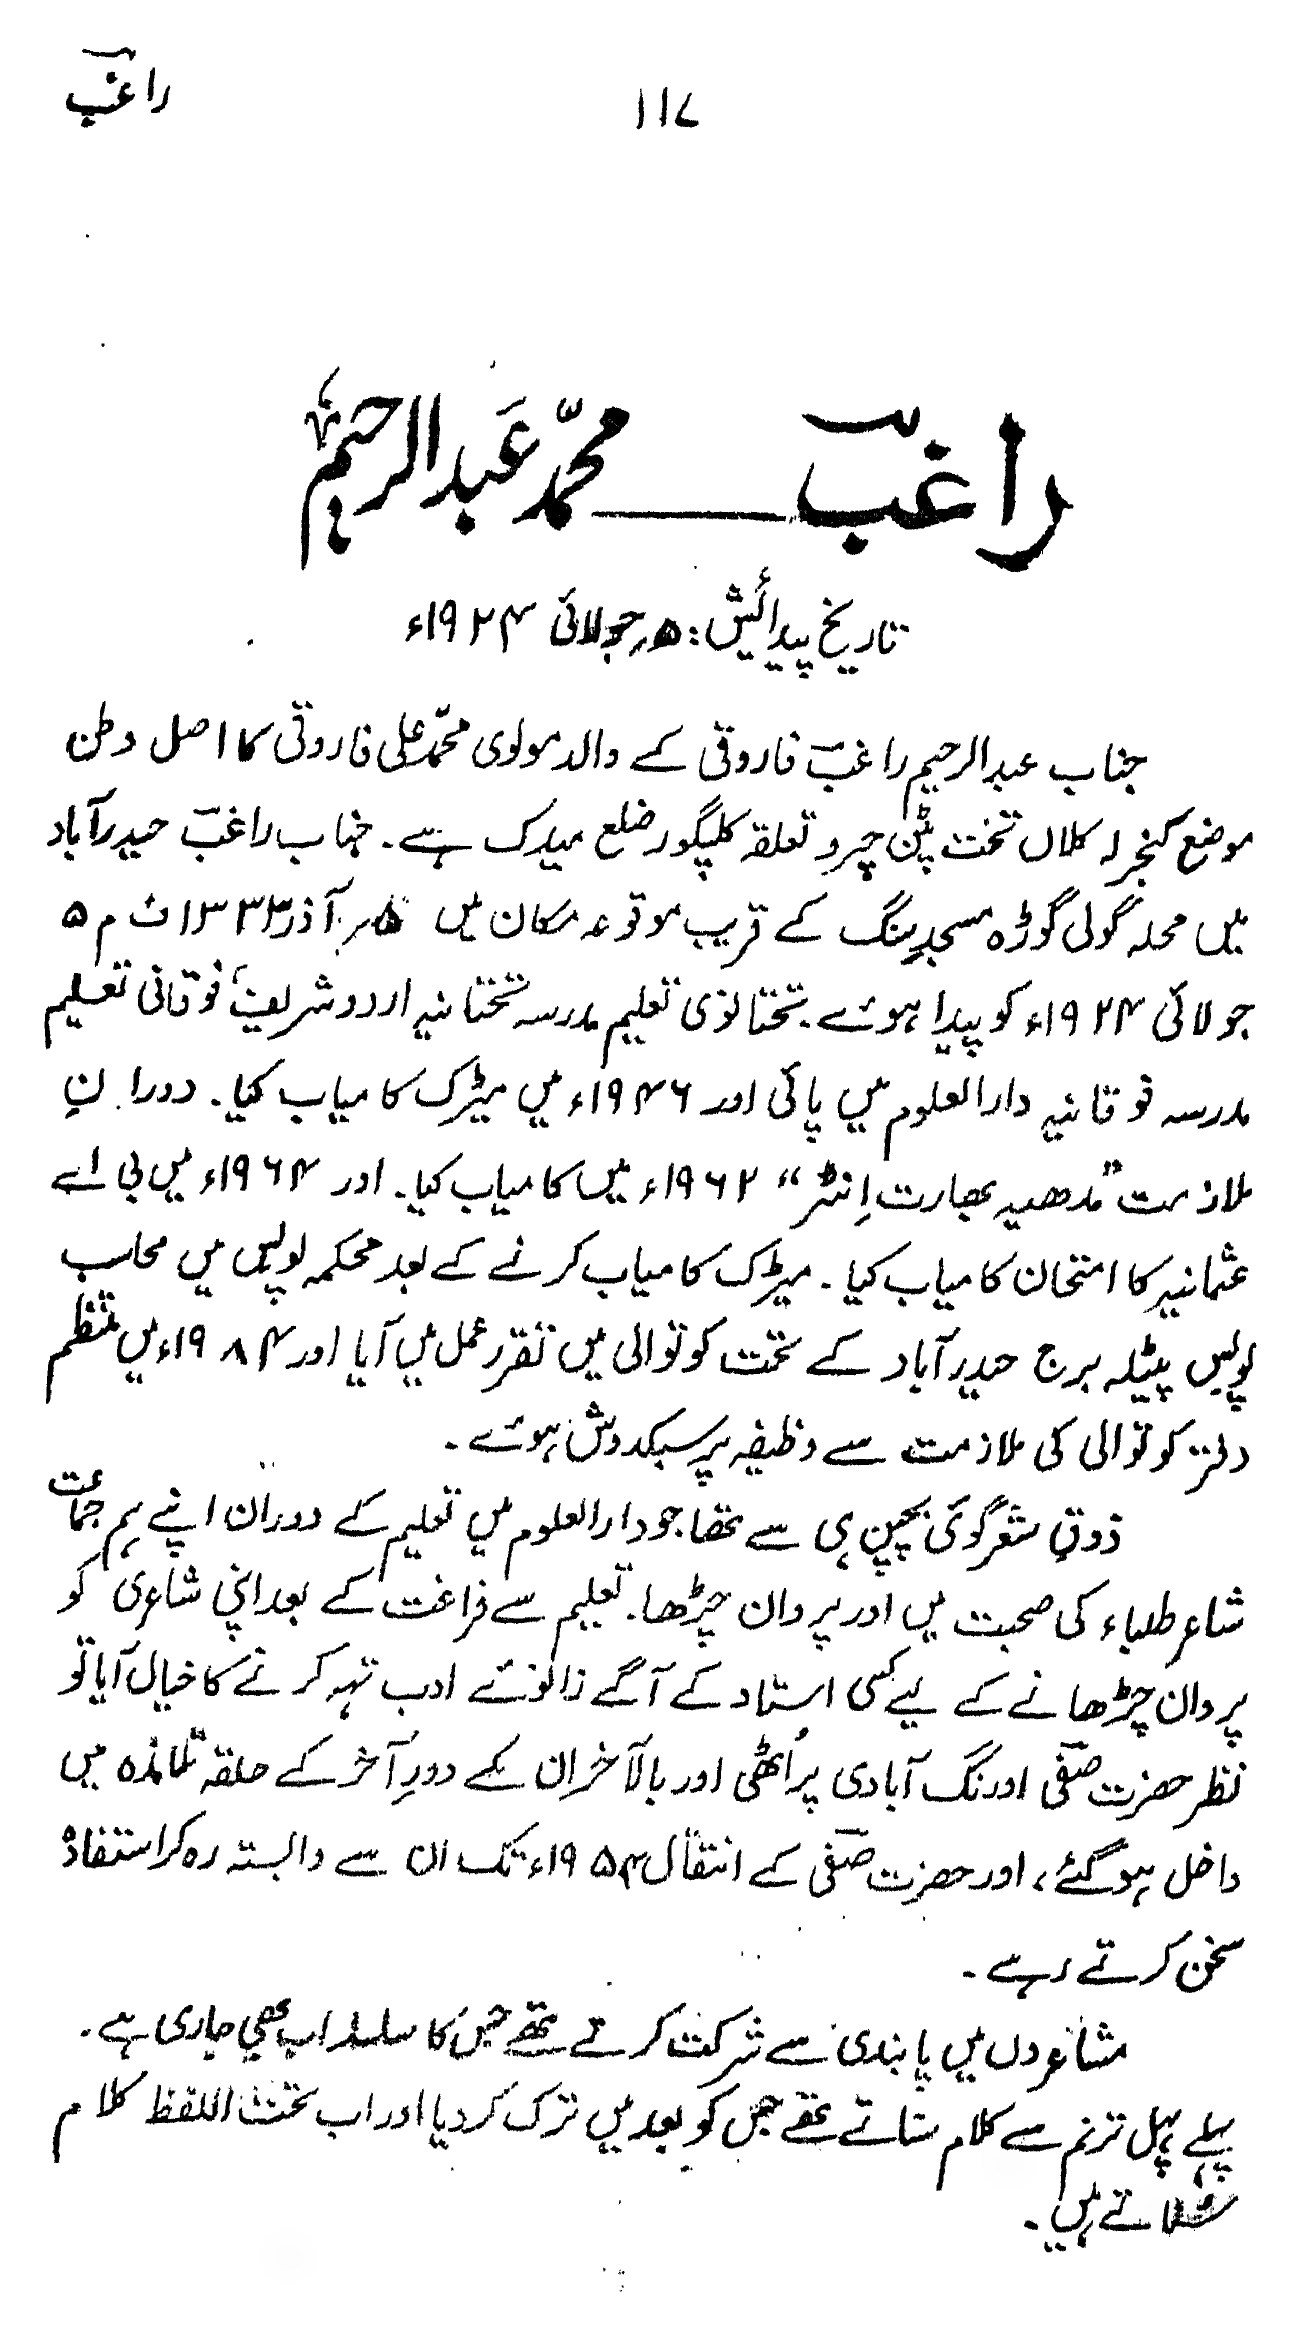 راغبؔ
۱۱۷
راغبؔ ـــــ محمّد عَبدالرحیم
تاریخ پیدائش: ۵؍جولائی ۱۹۲۴ء
جناب عبدالرحیم راغبؔ فاروقی کے والد مولوی محمّد علی فاروقی کا اصل وطن
موضع کنجرلہ کلاں تحت پٹن چرو تعلقہ کلپگور ضلع میدک ہے۔ جناب راغبؔ حیدرآباد
میں محلہ گولی گوڑہ مسجدِ ینگ کے قریب موقوعہ مکان میں ۵؍آذر ۱۳۳۳ ف م ۵
جولائی ۱۹۲۴ء کو پیدا ہوئے۔ تحتانوی تعلیم مدرسہ تحتانیہ اردو شریف، فوقانی تعلیم
مدرسہ فوقانیہ دارالعلوم میں پائی اور ۱۹۴۶ء میں میٹرک کامیاب کیا۔ دورانِ
ملازمت ”مدھیہ بھارت اِنٹر“ ۱۹۶۲ء میں کامیاب کیا۔ اور ۱۹۶۴ء میں بی اے
عثمانیہ کا امتحان کامیاب کیا۔ میٹرک کامیاب کرنے کے بعد محکمہ پولیس میں محاسب
پولیس پیٹلہ برج حیدرآباد کے تحت کوتوالی میں تقرر عمل میں آیا اور ۱۹۸۴ء میں منتظم
دفتر کوتوالی کی ملازمت سے وظیفہ پر سبکدوش ہوئے۔
ذوقِ شعرگوئی بچپن ہی سے تھا جو دارالعلوم میں تعلیم کے دوران اپنے ہم جماعت
شاعر طلباء کی صحبت میں اور پروان چڑھا۔ تعلیم سے فراغت کے بعد اپنی شاعری کو
پروان چڑھانے کے لیے کسی استاد کے آگے زانوئے ادب تہہ کرنے کا خیال آیا تو
نظر حضرت صفیؔ اورنگ آبادی پر اُٹھی اور بالآخر ان کے دورِ آخر کے حلقہ تلامذہ میں
داخل ہوگئے، اور حضرت صفیؔ کے انتقال ۱۹۵۴ء تک ان سے وابستہ رہ کر استفادۂ
سخن کرتے رہے۔
مشاعروں میں پابندی سے شرکت کرتے تھے جس کا سلسلہ اب بھی جاری ہے۔
پہلے پہل ترنم سے کلام سناتے تھے جس کو بعد میں ترک کردیا اور اب تحت اللفظ کلام
سناتے ہیں۔